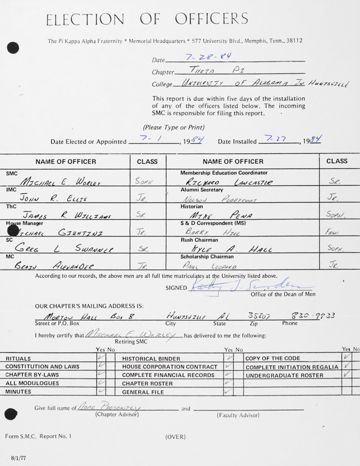 ELECTION OF OFFICERS
The Pi Kappa Alpha Fraternity * Memorial Headquarters * 577 University Blvd., Memphis, Tenn., 38112
Date 7-28-84
Chapter THETA PI
College UNIVERSITY OF ALABAMA IN HUNTSVILLE
This report is due within five days of the installation
of any of the officers listed below. The incoming
SMC is responsible for filing this report.
(Please Type or Print)
Date Elected or Appointed 7-1, 1984 Date Installed 7-27, 1984
NAME OF OFFICER CLASS NAME OF OFFICER CLASS
SMC Membership Education Coordinator
MICHAEL E WORLEY SOPH. RICHARD LANCASTER SR.
IMC Alumni Secretary
JOHN R. ELLIS JR. NELSON JR.
ThC Historian
JAMES R WILLIAMS SR. MIKE PENA SOPH.
House Manager S & D Correspondent (MS)
MICHAEL BARRY
SC Rush Chairman
GREG L SWANNER SR. KYLE A HALL SOPH.
MC Scholarship Chairman
BRIAN ALEXANDER JR. PAUL LEOPARD JR.
According to our records, the above men are all full time matriculates at the University listed above.
SIGNED
Office of the Dean of Men
OUR CHAPTER'S MAILING ADDRESS IS:
MORTON HALL BOX 8 HUNTSVILLE AL 35807 830-9733
Street or P.O. Box City State Zip Phone
I hereby certify that MICHAEL E. WORLEY, has delivered to me the following:
Retiring SMC
Yes No Yes No Yes No
RITUALS HISTORICAL BINDER COPY OF THE CODE
CONSTITUTION AND LAWS HOUSE CORPORATION CONTRACT COMPLETE INITIATION REGALIA
CHAPTER BY-LAWS COMPLETE FINANCIAL RECORDS UNDERGRADUATE ROSTER
ALL MODULOGUES CHAPTER ROSTER
MINUTES GENERAL FILE
Give full name of NONE PRESENTLY and
(Chapter Advisor) (Faculty Advisor)
Form S.M.C. Report No. 1 (OVER)
8/1/77